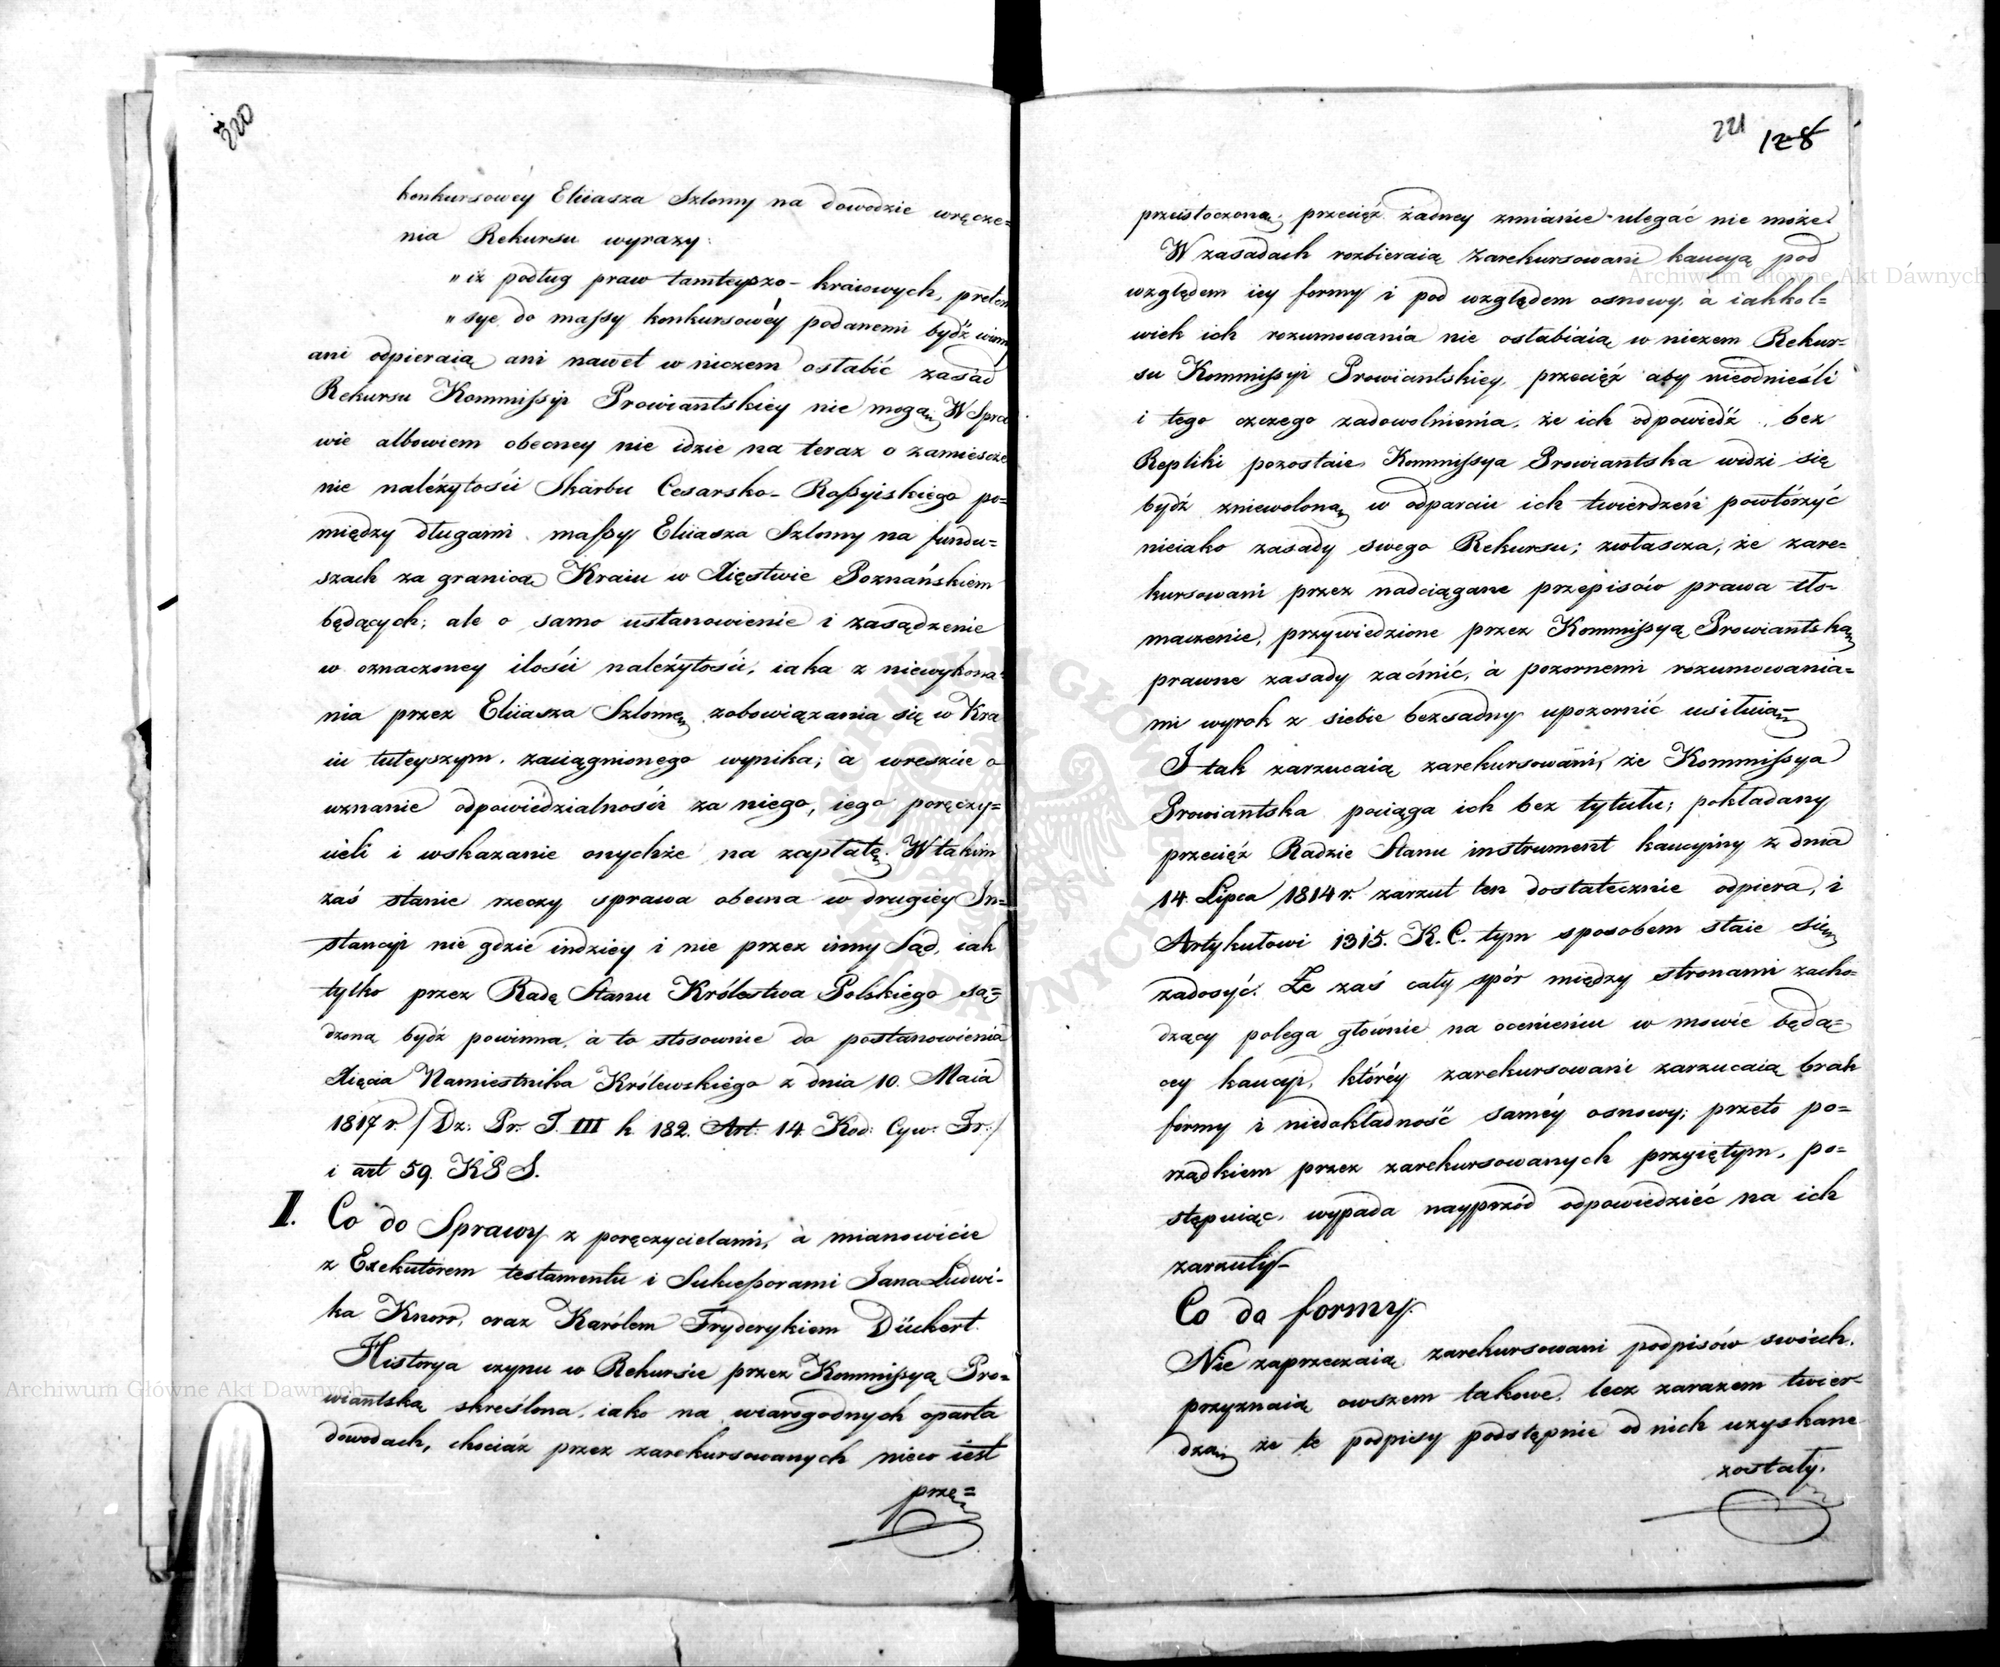 220
konkursowéy Eliiasza Szlomy na dowodzie wręcze=
nia Rekursu wyrazy:
„iż podług praw tamteyszo-kraiowych, preten
„sye do massy konkursowéy podanemi bydź winny
ani odpieraią ani nawet w niczem osłabić zasad
Rekursu Kommissyi Prowiantskiey nie mogą. W Spra
wie albowiem obecney nie idzie na teraz o zamieszcze
nie należytości Skarbu Cesarsko-Rossyiskiego po=
między długami massy Eliiasza Szlomy na fundu=
szach za granicą Kraiu w Xięstwie Poznańskiem
będących; ale o samo ustanowienie i zasądzenie
w oznaczoney ilości należytości, iaka z niewykona
nia przez Eliiasza Szlomę zobowiązania się w Kra
iu tuteyszym zaciągnionego wynika; a wreszcie o
uznanie odpowiedzialności za niego, iego poręczy=
cieli i wskazanie onychże na zapłatę. W takim
zaś stanie rzeczy sprawa obecna w drugiey In=
stancyi nie gdzie indziey i nie przez inny Sąd, iak
tylko przez Radę Stanu Królestwa Polskiego są=
dzoną bydź powinna, a to stosownie do postanowienia
Xięcia Namiestnika Królewskiego z dnia 10. Maia
1817 r. /Dz: Pr. T. III k 182. Art: 14. Kod: Cyw: Fr:/
i art 59. KPS.
I. Co do Sprawy z poręczycielami, à mianowicie
z Exekutorem testamentu i Sukcessorami Jana Ludwi-
ka Knorr, oraz Karólem Fryderykiem Dückert.
Historya czynu w Rekursie przez Kommissyą Pro=
wiantską skreślona, iako na wiarogodnych oparta
dowodach, chociaż przez zarekursowanych nieco iest
prze=
221 128
przeistoczoną; przecięż żadney zmianie ulegać nie może.
W zasadach rozbieraią zarekursowani kaucyą pod
względem iey formy i pod względem osnowy, à iakkol=
wiek ich rozumowania nie osłabiaią w niczem Rekur=
su Kommissyi Prowiantskiey, przecięż aby nieodnieśli
i tego czczego zadowolnienia, że ich odpowiedź bez
Repliki pozostaie, Kommissya Prowiantska widzi się
bydź zniewoloną w odparciu ich twierdzeń powtórzyć
nieiako zasady swego Rekursu; zwłaszcza, że zare=
kursowani przez nadciągane przepisów prawa tło=
maczenie, przywiedzione przez Kommissyą Prowiantską
prawne zasady zaćmić, à pozornemi rozumowania=
mi wyrok z siebie bezsadny upozornić usiłuią.
I tak zarzucaią zarekursowani, że Kommissya
Prowiantska pociąga ich bez tytułu; pokładany
przecięż Radzie Stanu instrument kaucyiny z dnia
14. Lipca 1814 r. zarzut ten dostatecznie odpiera, i
Artykułowi 1315. K. C. tym sposobem staie się
zadosyć. Że zaś cały spór między stronami zacho=
dzący polega głównie na ocenieniu w mowie będą=
cey kaucyi, któréy zarekursowani zarzucaią brak
formy i niedokładność saméy osnowy; przeto po=
rządkiem przez zarekursowanych przyiętym, po=
stępuiąc, wypada nayprzód odpowiedzieć na ich
zarzuty.
Co do formy.
Nie zaprzeczaią zarekursowani podpisów swoich,
przyznaią owszem takowe, lecz zarazem twier=
dzą że te podpisy podstępnie od nich uzyskane
zostały.
Archiwum Główne Akt Dawnych
Archiwum Główne Akt Dawnych